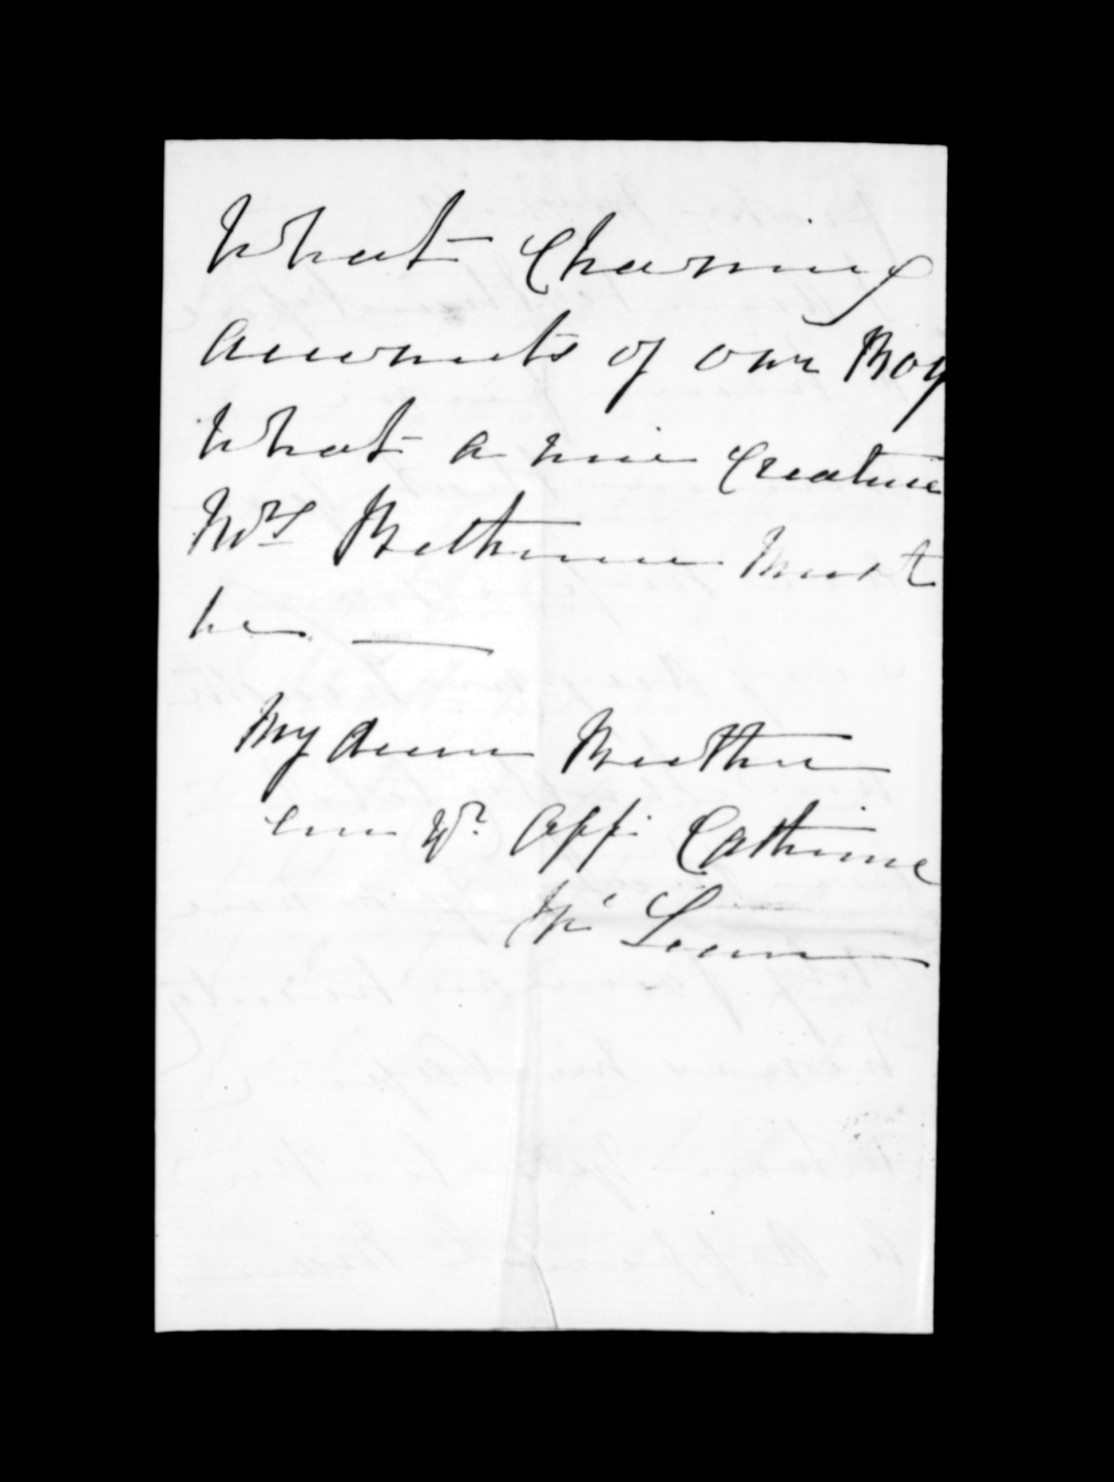 What Charming
accounts of our Boy
What a nice Creature
Mrs Bethune Must
be —
My dear Brother
ever Yr. Aff. Catherine
Mc Lean